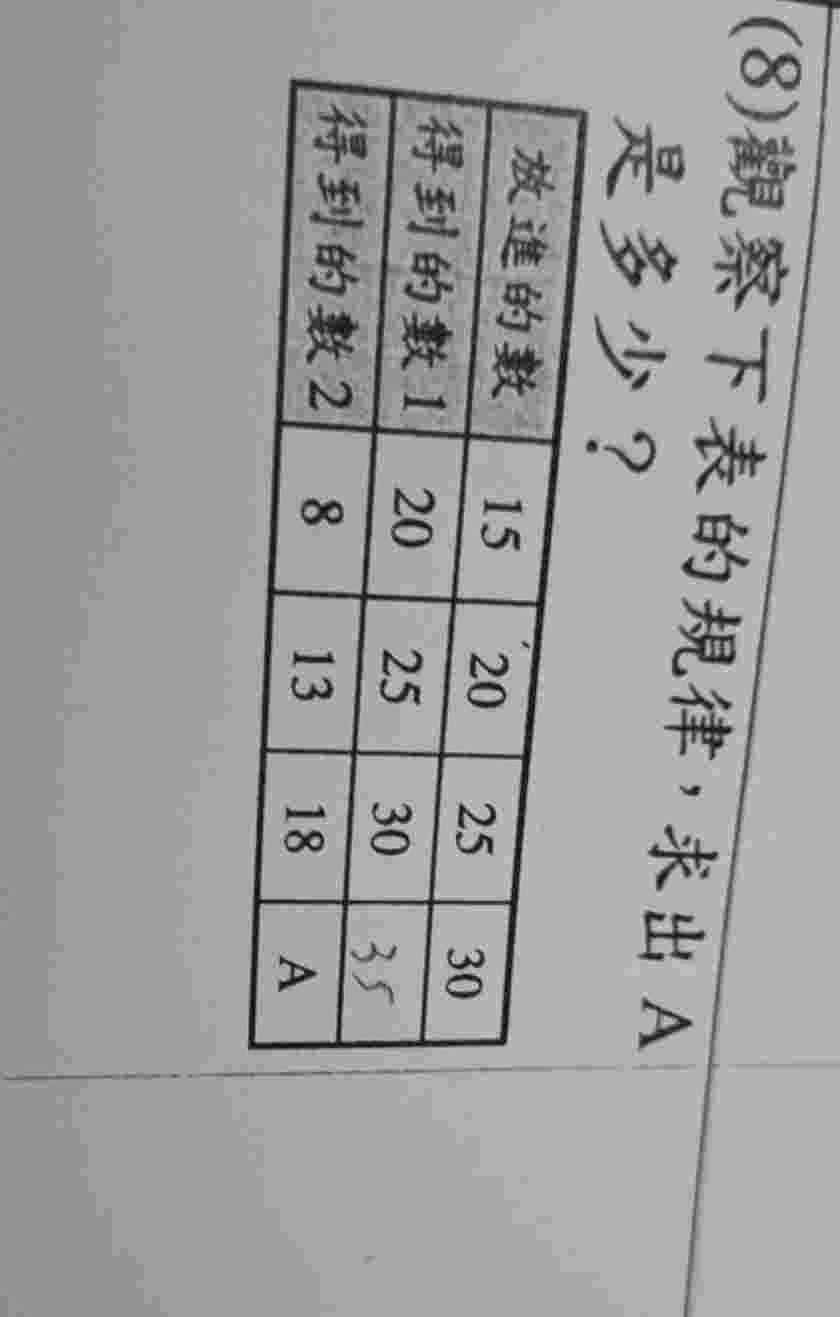 (8)觀察下表的規律，求出A
是多少？
放進的數 15 20 25 30
得到的數1 20 25 30 35
得到的數2 8 13 18 A